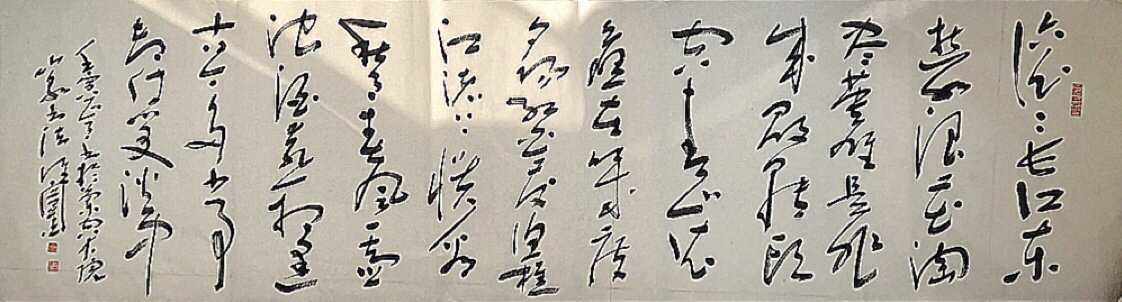 滚滚长江东
逝水浪花淘
尽英雄是非
成败转头
空青山依
旧在几度
夕阳红白发渔樵
江渚上惯看
秋月春风一壶
浊酒喜相逢
古今多少事
都付笑谈中